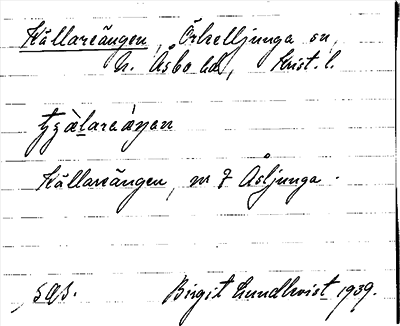 Källareängen, Örkelljunga sn,
N. Åsbo hd, Krist. l.
Källareängen, m f Åsljunga.
Sgs. Birgit Lundkvist 1939.